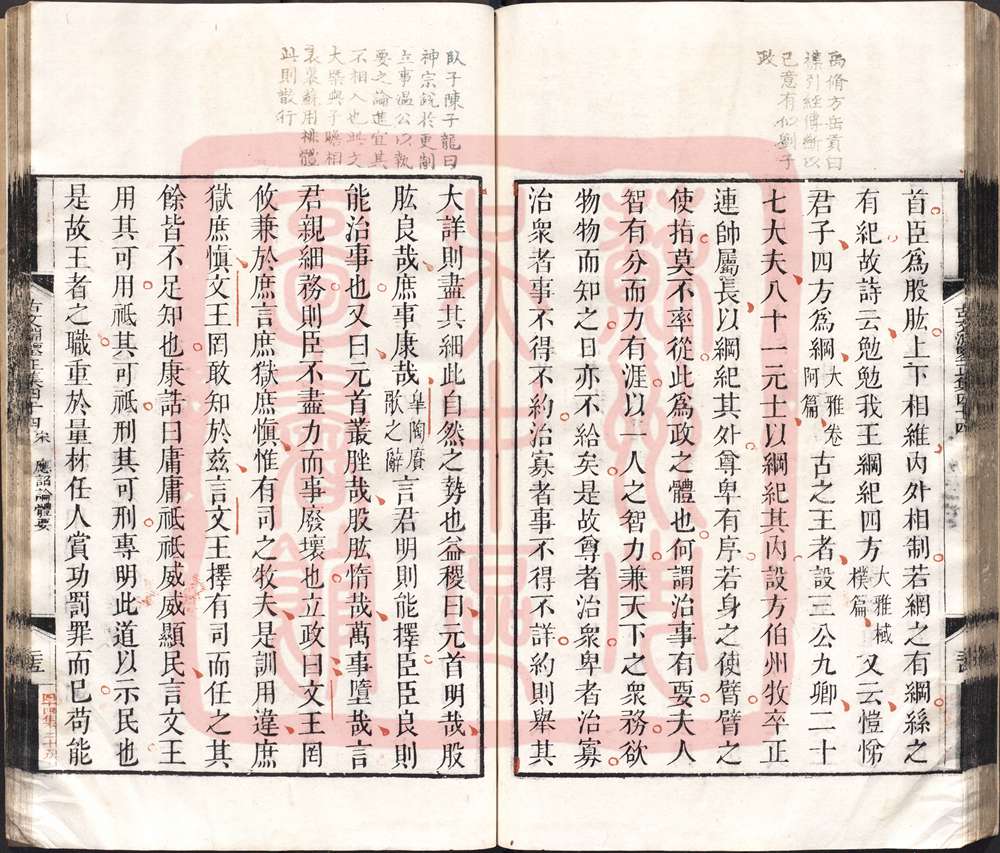 禹脩方岳貢曰
襍引經傳斷以
己意有似劉子
政
首臣爲股肱上下相維內外相制若網之有綱絲之
有紀故詩云勉勉我王綱紀四方大雅棫樸篇又云愷悌
君子四方爲綱大雅卷阿篇古之王者設三公九卿二十
七大夫八十一元士以綱紀其內設方伯州牧卒正
連師屬長以綱紀其外尊卑有序若身之使臂臂之
使指莫不率從此爲政之體也何謂治事有要夫人
智有分而力有涯以一人之智力兼天下之衆務欲
物物而知之日亦不給矣是故尊者治衆卑者治寡
治衆者事不得不約治寡者事不得不詳約則舉其
臥子陳子龍曰
神宗銳於更制
立事溫公以執
要之論進宜其
不相入也此文
大槩與子瞻相
表裏蘇用排體
此則散行
大詳則盡其細此自然之勢也益稷曰元首明哉股
肱良哉庶事康哉皋陶賡歌之辭言君明則能擇臣臣良則
能治事也又曰元首叢脞哉股肱惰哉萬事墮哉言
君親細務則臣不盡力而事廢壞也立政曰文王罔
攸兼於庶言庶獄庶慎惟有司之牧夫是訓用違庶
獄庶慎文王罔敢知於兹言文王擇有司而任之其
餘皆不足知也康誥曰庸庸祗祗威威顯民言文王
用其可用祗其可祗刑其可刑專明此道以示民也
是故王者之職重於量材任人賞功罰罪而已苟能
古文淵鑒正集四十四 宋 應詔論體要